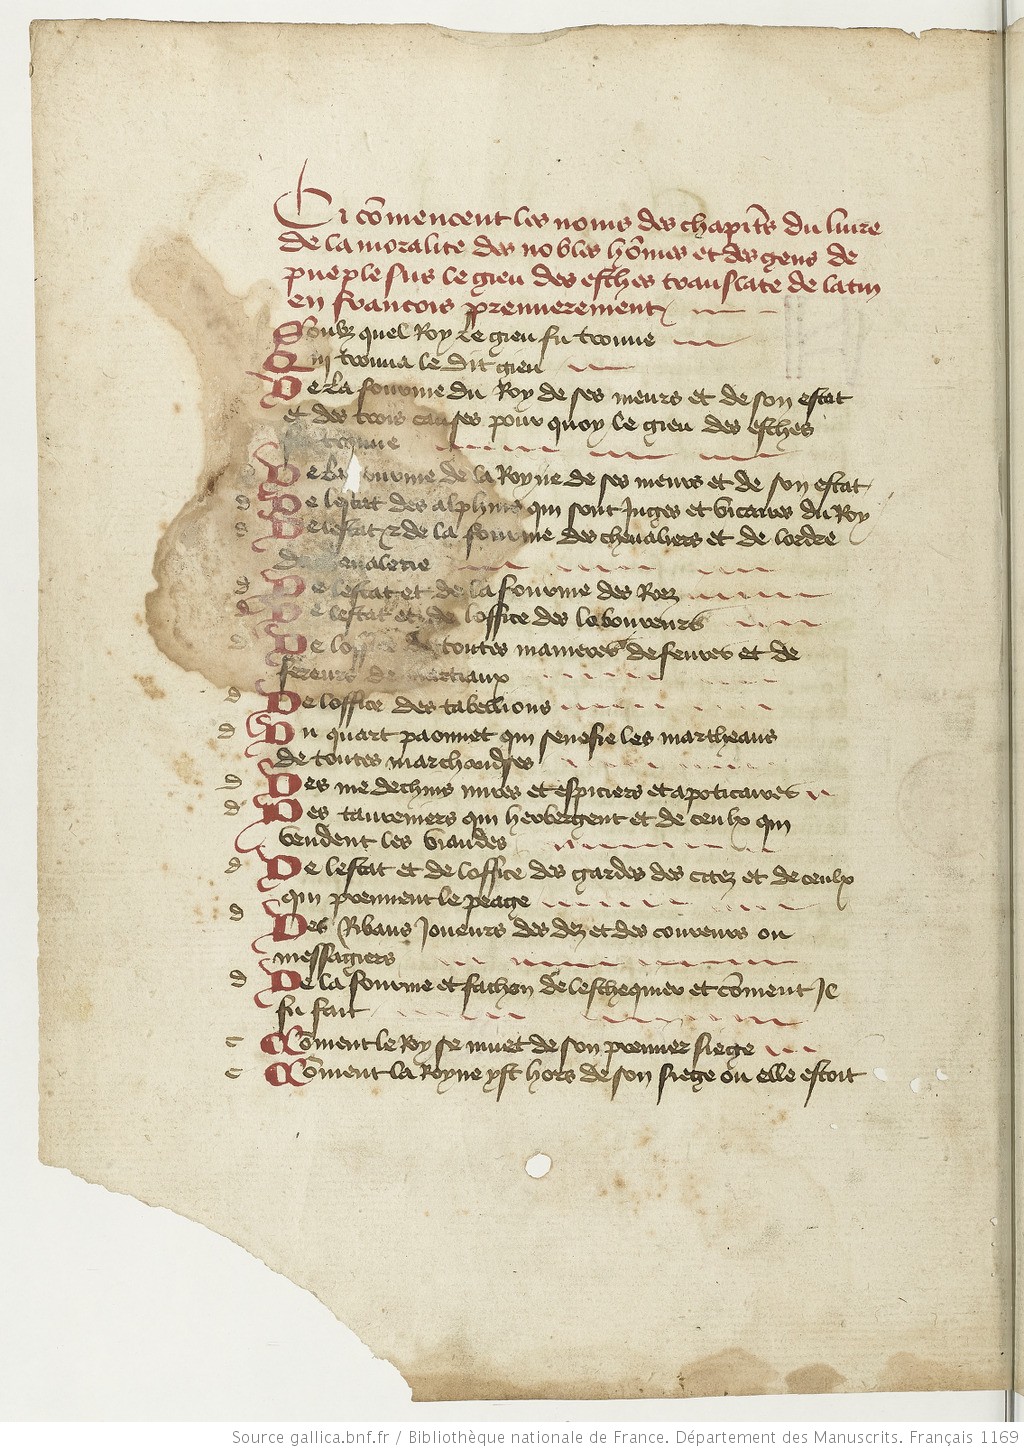 Ci cōmencent les noms des chapitr̄s du liure
de la moralite des nobles hōmes et des gens de
pueple sus le gieu des esches translate de latin
en francois premierement
Soubz quel Roy le gieu fu trouue
Qui trouua le dit gieu
De la fourme du Roy de ses meurs et de son estat
et des trois causes pour quoy le gieu des esches
fu trouue
De la fourme de la Royne de ses meurs et de son estat
d De lestat des alphins qui sont Juges et vicaires du Roy
d De lestat & de la fourme des cheualiers et de lordre
de cheualerie
d De lestat et de la fourme des Rocz
d De lestat et de loffice des laboureurs
d De loffice de toutes manieres de feures et de
de
d De loffice des tabellions
d Du quart paonnet qui senefie les martheans
de toutes marchandises
d Des medechins mires et espiciers et apoticaires
d Des taureniers qui herbergent et de ceulx qui
vendent les viandes
d De lestat et de loffice des gardes des citez et de ceulx
qui prennent le peage
d Des Ribaus Joueurs des dez et des coureurs ou
messagiers
d De la fourme et fachon de leschequier et cōment Jl
fu fait
c Cōment le Roy se muet de son premier siege
c Cōment la Royne yst hors de son siege ou elle estoit
Source gallica.bnf.fr / Bibliothèque nationale de France. Département des Manuscrits. Français 1169